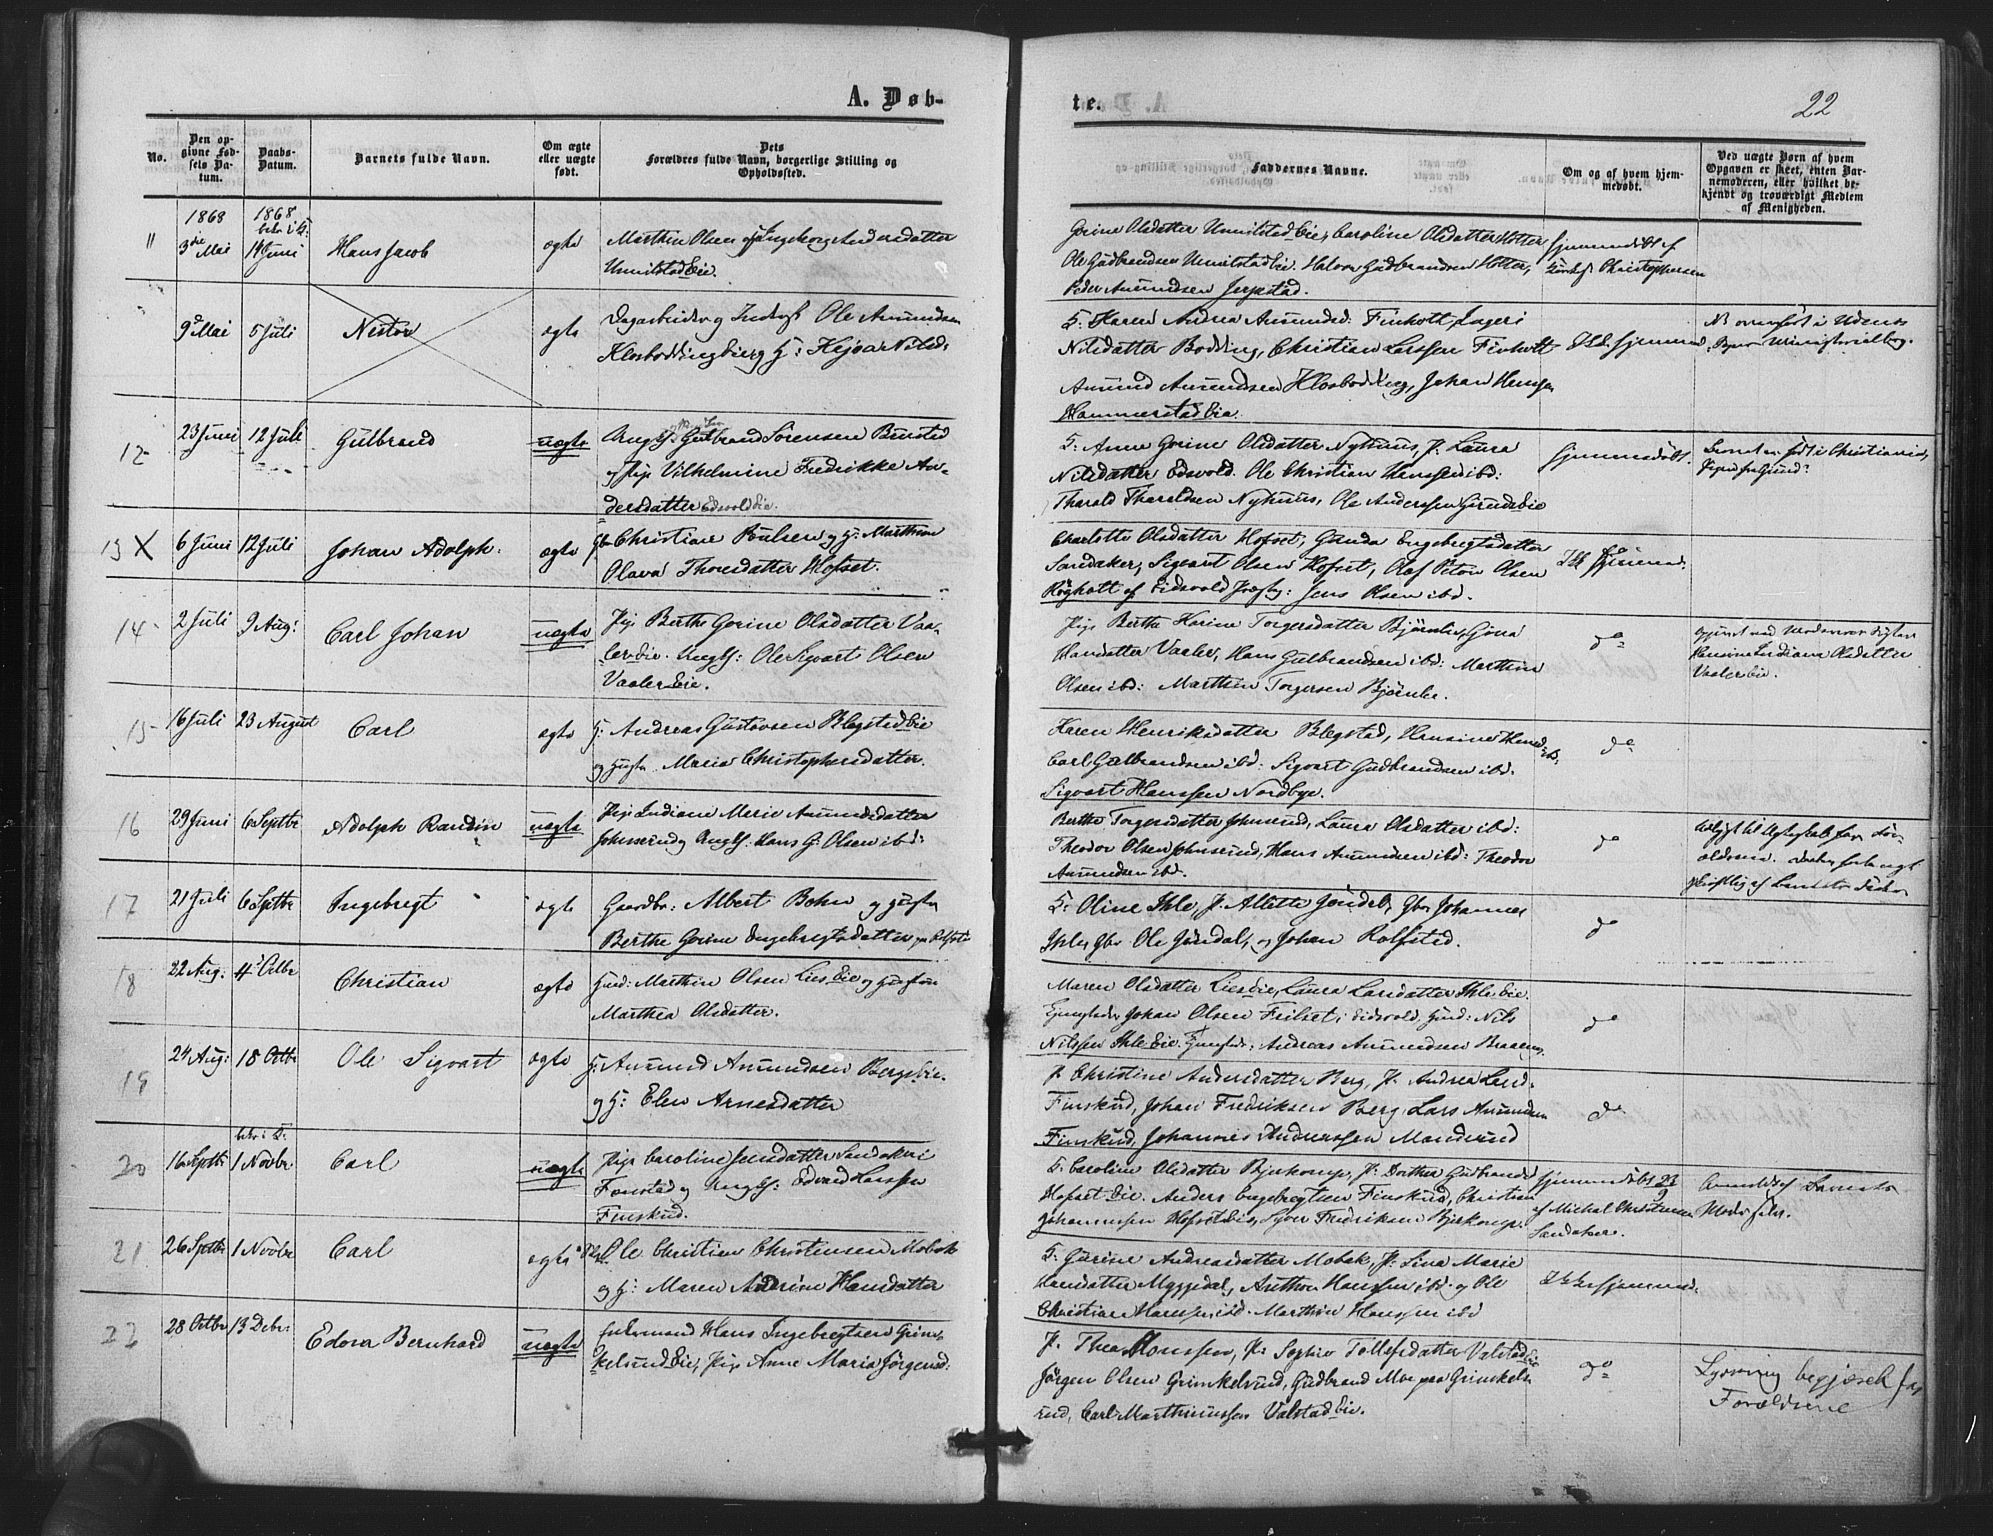 A. Døb-
te.
22
No.
Den op-
givne Fød-
sels Da-
tum.
Daabs-
Datum.
Barnets fulde Navn.
Om ægte
eller uægte
født.
Dets
Forældres fulde Navn, borgerlige Stilling og
Opholdssted.
Faddernes Navne.
Om og af hvem hjem-
medøbt.
Ved uægte Børn af hvem
Opgaven er skeet, enten Bar-
nemoderen, eller hvilket be-
kjendt og troværdigt Medlem
af Menigheden.
1868
1868
11
3die Mai
14 Juni
Hans Jacob
ægte
Marthin Olsen og Ingeborg Andersdatter
Unnitstad Eie.
Gorine Olsdatter Unnitstad Eie, Caroline Olsdatter Hotter
Ole Gudbrandsen Unnitstad Eie. Halvor Gudbrandsen Hotter,
Peder Amundsen Jerpstad.
Hjemmedøbt af
Christophersen
9 Mai
5 Juli
Nestor
ægte
Dagarbeider og Inderst Ole Amundsen
Nilsd:
F: Karen Andrea Amundsd: Finholt, Ingeri
Nilsdatter Bodding, Christian Larssen Finholt
Amund Amundsen Johan
Hammerstad Eie.
Ikke hjemmed.
NB overført i Udenes
Ministerialbog.
12
23 Juni
12 Juli
Gulbrand
uægte
Ungk: Gulbrand Sørensen
og Pige Vilhelmine Fredrikke An-
dersdatter Edsvold Eie.
F: Anne Gorine Olsdatter Nyhuus, P. Laura
Nilsdatter Edsvold. Ole Christian Hanssen ibd:
Tharald Tharaldsen Nyhuus, Ole Anderssen
Hjemmedøbt.
født i Christiania,
13 X
6 Juni
12 Juli
Johan Adolph.
ægte
Gbr Christian Poulsen og H: Marthea
Olava Thoresdatter Hofset.
Charlotte Olsdatter Hofset, Gunda Engebregtsdatter
Sandaker, Sigvart Olsen Hofset, Olaf Peter Olsen
Røgholt af Eidsvold Jens Olsen ibd.
Ikke hjemmed.
14
2 Juli
9 Aug:
Carl Johan
uægte
Pige Berthe Gorine Olsdatter Vaa-
ler Eie. Ungk: Ole Sigvart Olsen
Vaaler Eie.
Pige Berthe Karine Torgersdatter Bjørnle,
Hansdatter Vaaler, Hans Gulbrandsen ibd: Marthin
Olsen ibd: Marthin Torgersen Bjørnle.
do
Olsdatter
Vaaler Eie.
15
16 Juli
23 August
Carl
ægte
H: Andreas Gustavsen Blegstad Eie
og Hustr. Maria Christophersdatter.
Karen Henriksdatter Blegstad,
Carl Gulbrandsen ibd: Sigvart Gudbrandsen ibd.
Sigvart Hanssen Nordbye.
do
16
29 Juni
6 Septbr
Adolph Randin
uægte
Pige Indiane Marie Amundsdatter
Johnsrud og Ungk. Hans G: Olsen ibd:
Berthe Torgersdatter Johnsrud, Laura Olsdatter ibd:
Theodor Olsen Johnsrud, Hans Amundsen ibd: Theodor
Amundsen ibd.
do
17
21 Juli
6 Septbr
Ingebregt
ægte
Gaardbr: Albert Bohn og Hustru
Berthe Gorine Engebregtsdatter
F: Oline Ihle, P. Allette Jøndal, Gbr Johannes
Ihle, Gbr Ole Jøndal, og Johan Rolfsted.
do
18
22 Aug:
4 Octbr
Christian
ægte
Huusmd: Marthin Olsen Lies Eie og Hustru
Marthea Olsdatter.
Maren Olsdatter Lies Eie, Laura Larsdatter Ihle Eie.
Johan Olsen Feilset i Eidsvold, Nils
Nilssen Ihle Eie. Andreas Amundsen
do
19
24 Aug:
18 Octbr
Ole Sigvart
ægte
H: Amund Amundsen Bergs Eie
og H: Elen Arnesdatter
P. Christine Andersdatter Berg, P. Andrea
Finskud, Johan Fredriksen Berg, Lars Amundsen
Finskud, Johannes Anderssen Manderud
do
20
16 Septbr
1 Novbr
Carl
uægte
Pige Caroline Jensdatter Sandaker i
Fonstad og Ungk: Edvard Larssen
Finskud.
F. Caroline Olsdatter Bjerkomp, P: Dorthea Gudbrandsd
Hofset Eie. Anders Engebregtsen Finskud, Christian
Johannesen Hofset Eie, Syver Fredriksen Bjerkomp.
Hjemmedøbt 23/9
af Michal Christiansen
Sandaker.
Anmeldt af Barnets
21
26 Septbr
1 Novbr
Carl
ægte
Ole Christian Christensen Mobæk
og H: Maren Andrine Hansdatter
F: Gurine Andreasdatter Mobæk, P. Lina Marie
Hansdatter Myggedal, Anthon Hanssen ibd. og Ole
Christian Hanssen ibd. Marthin Hanssen ibd
Ikke hjemmed.
22
28 Octbr
13 Decbr:
Edvar Bernhard
uægte
Enkemand Hans Ingebregtsen Grim-
kelsrud Eie, Pige Anne Maria Jørgensd:
P. Thea Hanssen, P: Sophie Tollefsdatter Valstad Eie
Jørgen Olsen Grimkelsrud, Gudbrand Moe paa Grimkels-
rud, Carl Marthinussen Valstad Eie.
do
Lysning begjæret for
Forældrene